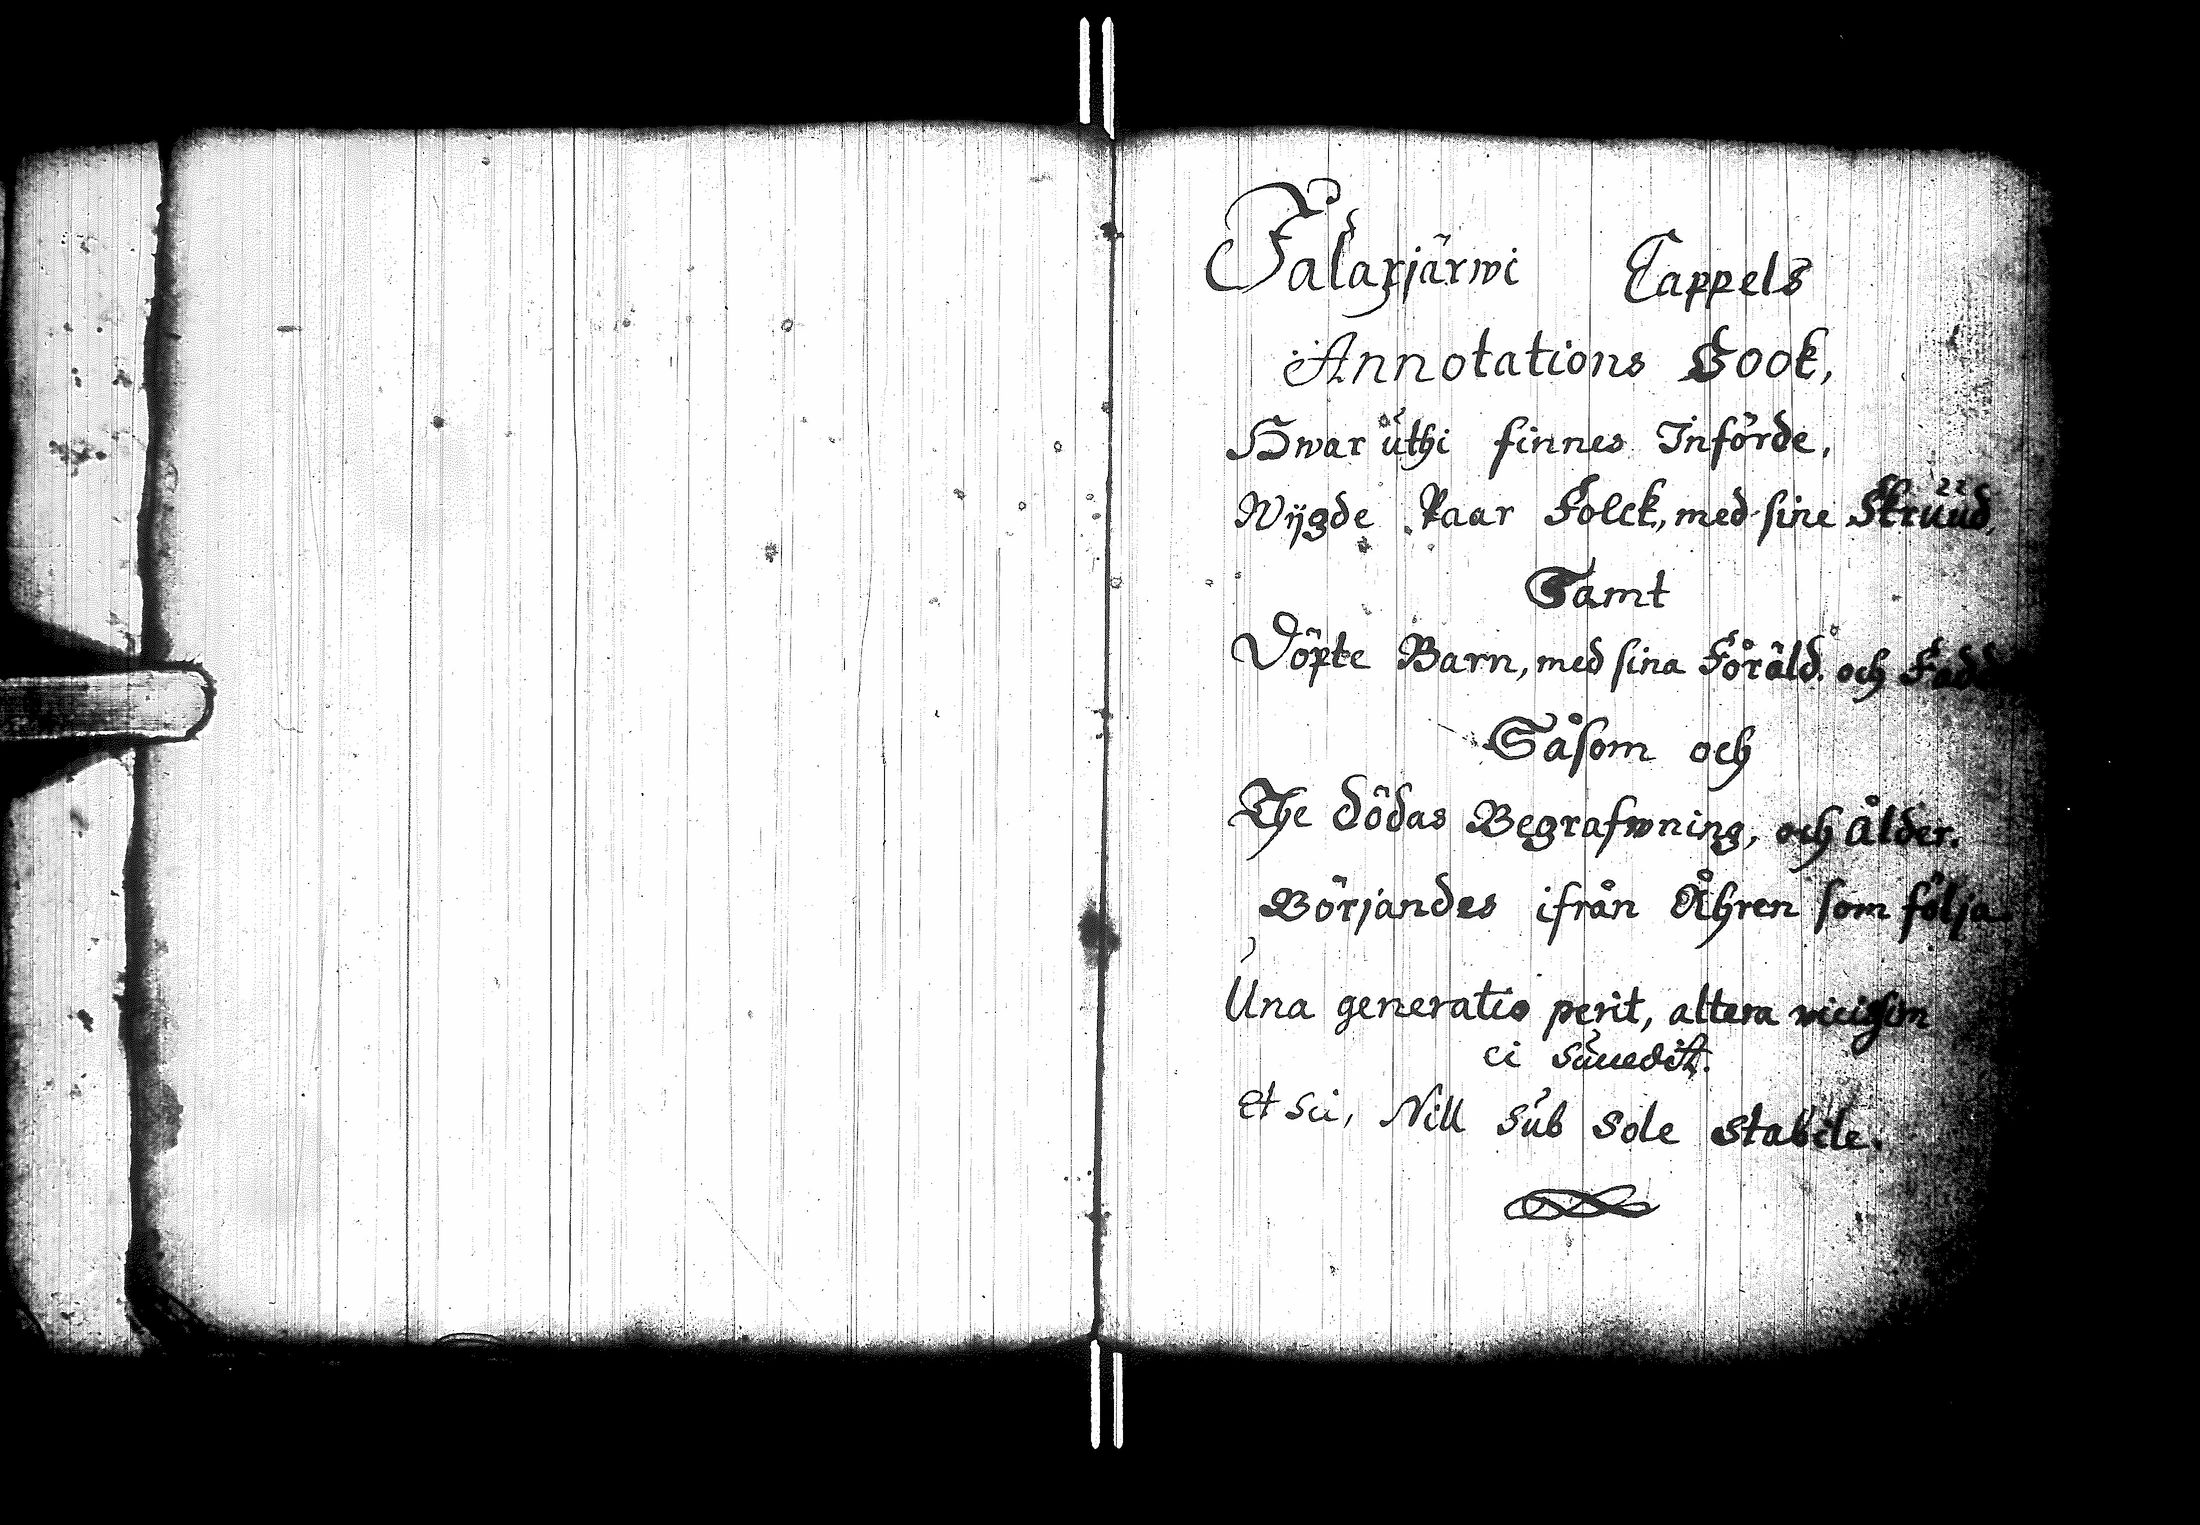 Jalaxjärwi Cappels
Annotations Book,
Hwar uthi finnes Införde,
Wijgde Paar Folck, med sine Skruud,
Samt
Döpte Barn, med sina Föräld. och Fadd
Såsom och
The dödas Begrafwning, och Ålder.
Börjandes ifrån Åhren som följa.
Una generatio perit, altera vicissim
ei succedit.
et sci, Nill sub sole stabile.